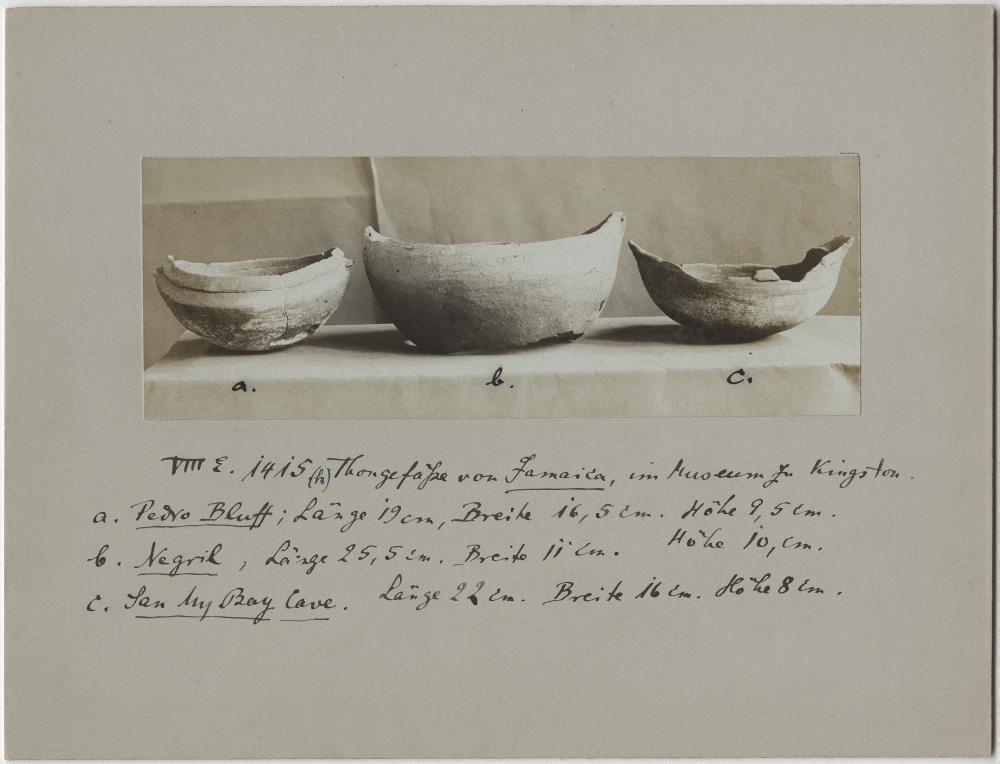 a. b. c.
VIII E. 1415 (h) Thongefäße von Jamaica, im Museum zu Kingston.
a. Pedro Bluff; Länge 19 cm, Breite 16,5 cm. Höhe 9,5 cm.
b. Negril, Länge 25,5 cm. Breite 11 cm. Höhe 10, cm.
c. San Bay Cave. Länge 22 cm. Breite 16 cm. Höhe 8 cm.